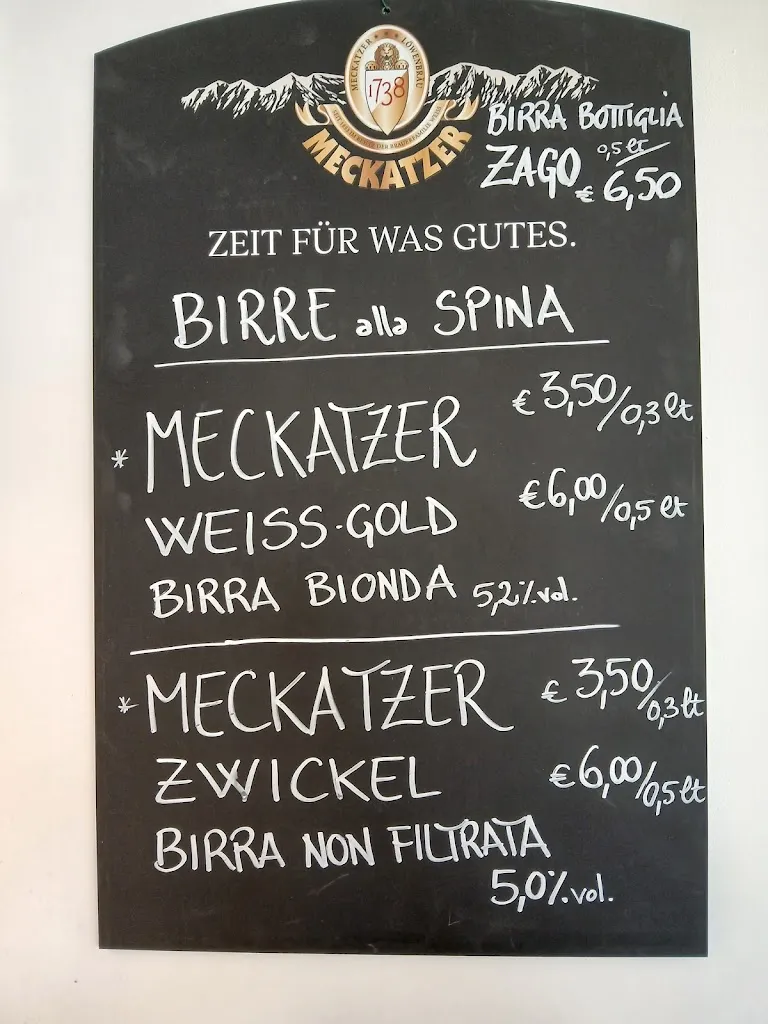 MECKATZER LÖWENBRÄU
1738
MECKATZER
BIRRA BOTTIGLIA
ZAGO 0,5 lt
€ 6,50
ZEIT FÜR WAS GUTES.
BIRRE alla SPINA
* MECKATZER € 3,50/0,3 lt
WEISS-GOLD € 6,00/0,5 lt
BIRRA BIONDA 5,2% vol.
* MECKATZER € 3,50/0,3 lt
ZWICKEL € 6,00/0,5 lt
BIRRA NON FILTRATA
5,0% vol.